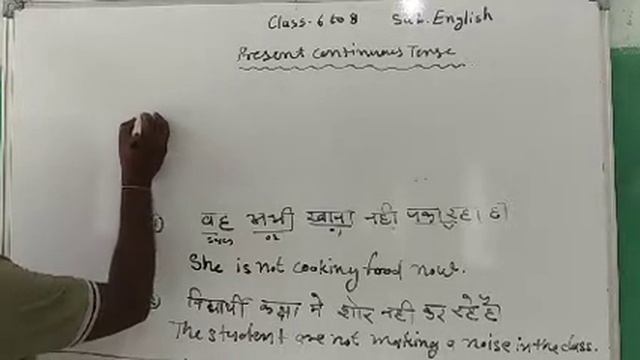 Class-6 to 8 Sub. English
Present Continuous Tense
वह अभी खाना नही पका रहा है
She is not cooking food now.
विद्यार्थी कक्षा मे शोर नही कर रहे है
The student are not making a noise in the class.